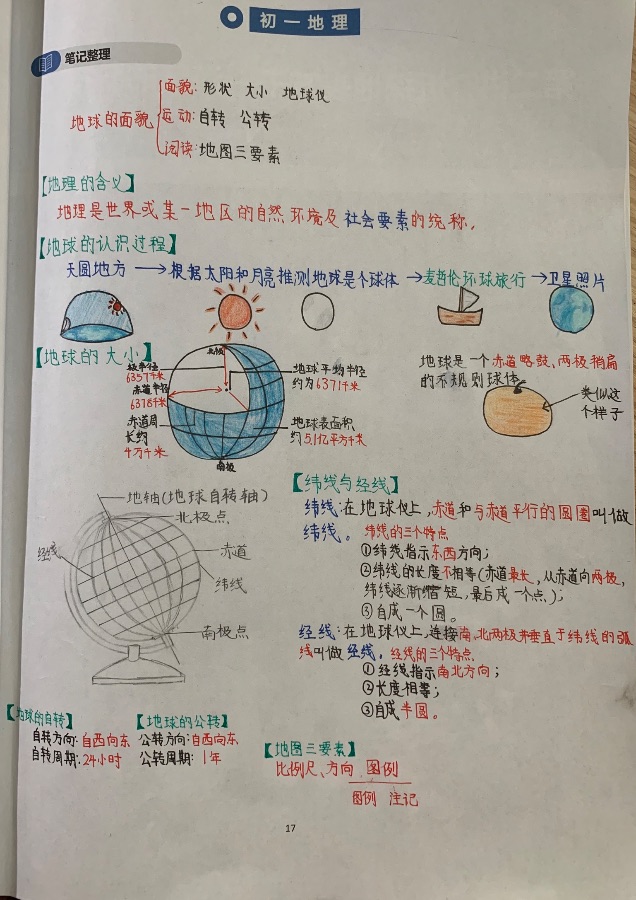 初一地理
笔记整理
地球的面貌
面貌: 形状 大小 地球仪
运动: 自转 公转
阅读: 地图三要素
【地理的含义】
地理是世界或某一地区的自然环境及社会要素的统称。
【地球的认识过程】
天圆地方 → 根据太阳和月亮推测地球是个球体 → 麦哲伦环球旅行 → 卫星照片
【地球的大小】
北极
极半径
6357千米
赤道半径
6378千米
赤道周
长约
4万千米
南极
地球平均半径
约为6371千米
地球表面积
约5.1亿平方千米
地球是一个赤道略鼓、两极稍扁
的不规则球体
类似这
个样子
地轴(地球自转轴)
北极点
经线
赤道
纬线
南极点
【纬线与经线】
纬线:在地球仪上,赤道和与赤道平行的圆圈叫做
纬线。 纬线的三个特点
①纬线指示东西方向;
②纬线的长度不相等(赤道最长,从赤道向两极,
纬线逐渐缩短,最后成一个点);
③自成一个圆。
经线:在地球仪上,连接南北两极并垂直于纬线的弧
线叫做经线。经线的三个特点
①经线指示南北方向;
②长度相等;
③自成半圆。
【地球的自转】
自转方向:自西向东
自转周期:24小时
【地球的公转】
公转方向:自西向东
公转周期:1年
【地图三要素】
比例尺、方向 图例
图例 注记
17